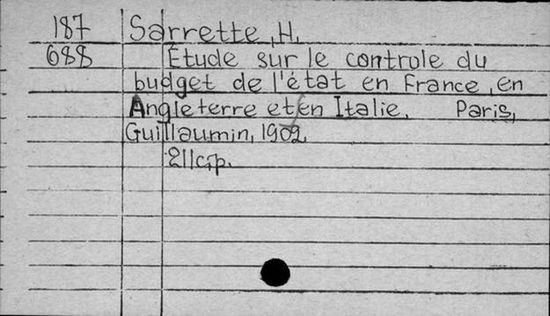 187 Sarrette, H.
688 Étude sur le controle du
budget de l'état en France, en
Angleterre et en Italie. Paris,
Guillaumin, 1902.
211 p.